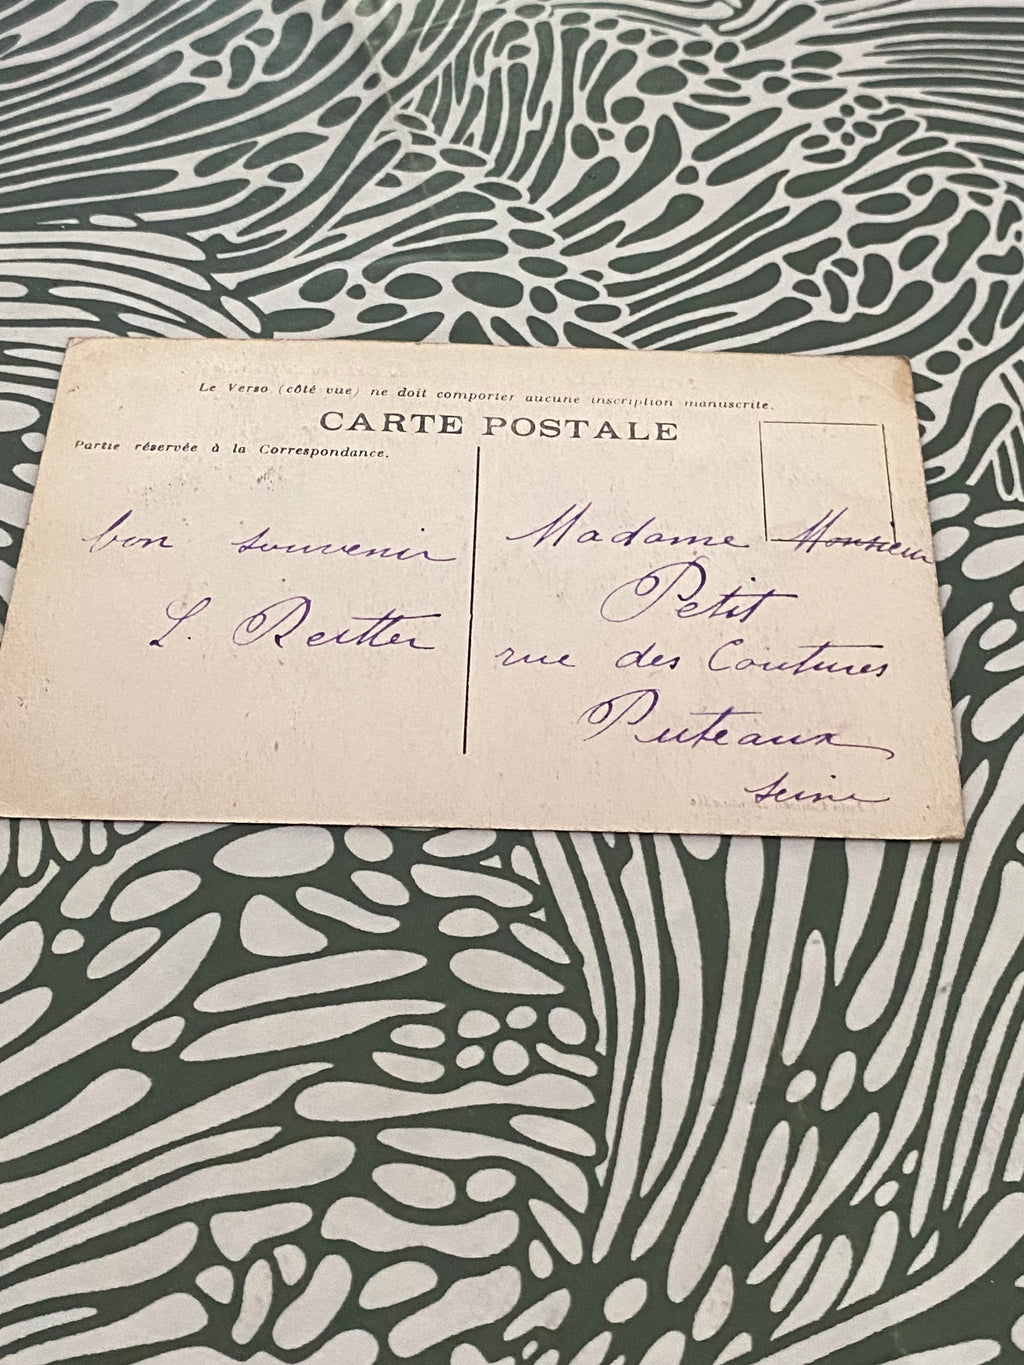 Le Verso (côté vue) ne doit comporter aucune inscription manuscrite.
CARTE POSTALE
Partie réservée à la Correspondance.
bon souvenir
L. Reitter
Madame Monsieur
Petit
rue des Coutures
Puteaux
Seine